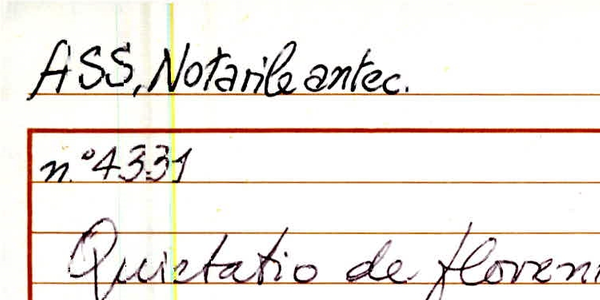 ASS, Notarile antec.
n.° 4331
Quietatio de